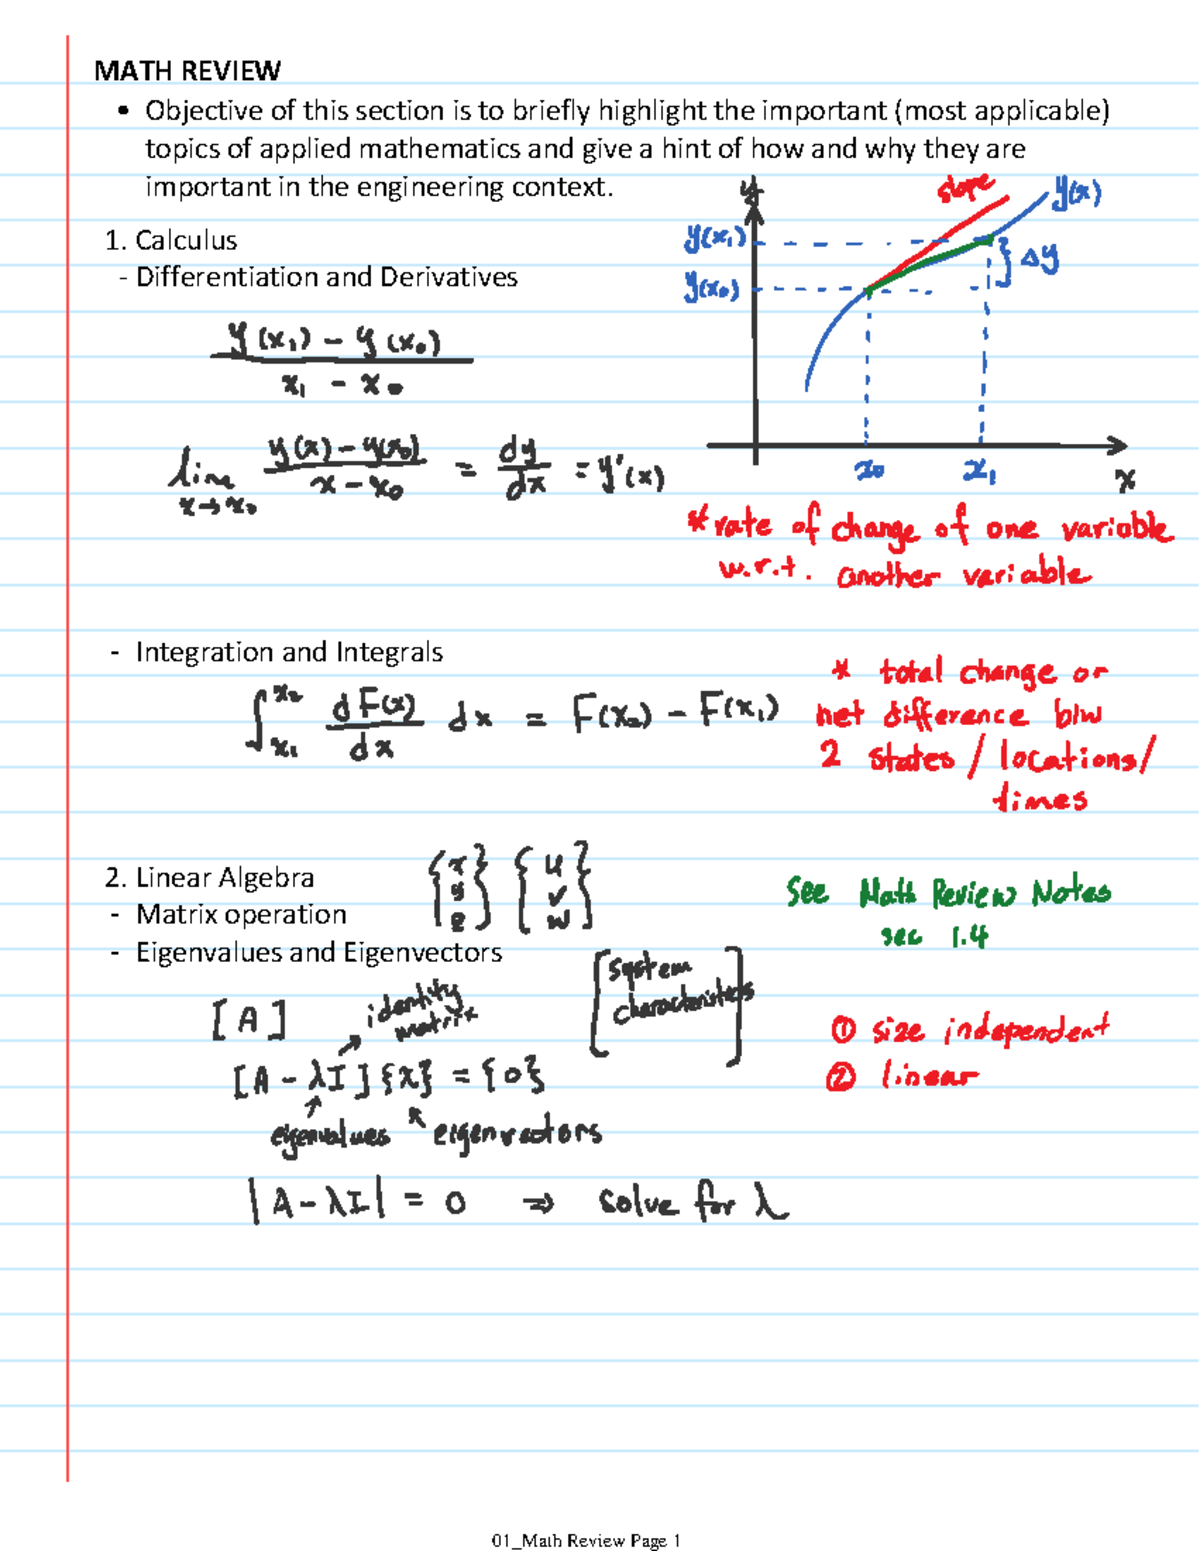 MATH REVIEW
• Objective of this section is to briefly highlight the important (most applicable)
topics of applied mathematics and give a hint of how and why they are
important in the engineering context.
1. Calculus
- Differentiation and Derivatives
y
slope
y(x)
y(x₁)
y(x₀)
} Δy
x₀
x₁
x
y(x₁) - y(x₀)
x₁ - x₀
lim
x→x₀
y(x) - y(x₀)
x - x₀
= dy/dx = y'(x)
* rate of change of one variable
w.r.t. another variable
- Integration and Integrals
∫ₓ₁ˣ² dF(x)/dx dx = F(x₂) - F(x₁)
* total change or
net difference b/w
2 states / locations/
times
2. Linear Algebra
- Matrix operation
- Eigenvalues and Eigenvectors
{x y z} {u v w}
See Math Review Notes
sec 1.4
[system
characteristics]
[A]
identity
matrix
[A - λI]{x} = {0}
eigenvalues
eigenvectors
|A - λI| = 0 ⇒ solve for λ
① size independent
② linear
01_Math Review Page 1